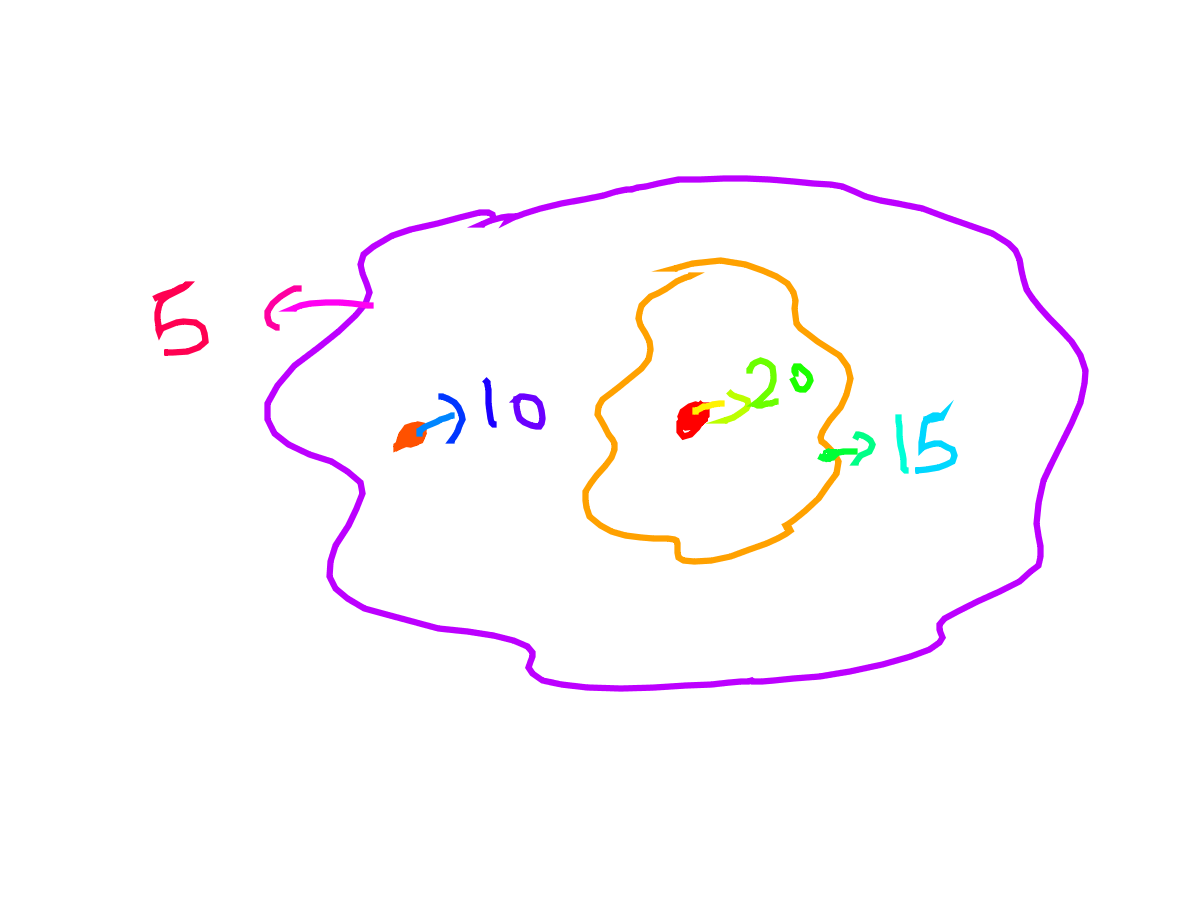 5
10
20
15